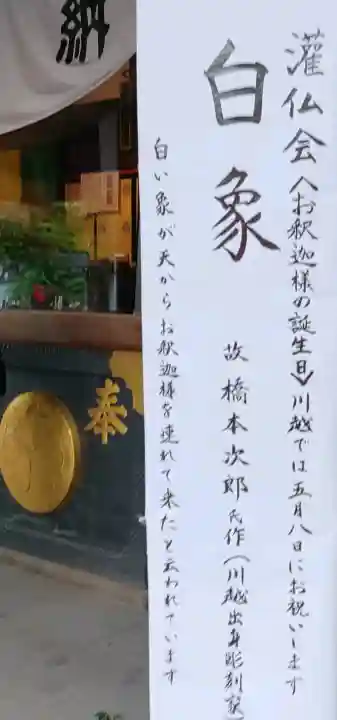 灌仏会〈お釈迦様の誕生日〉川越では五月八日にお祝いします
白象
故橋本次郎氏作（川越出身彫刻家
白い象が天からお釈迦様を連れて来たと云われています
納
奉